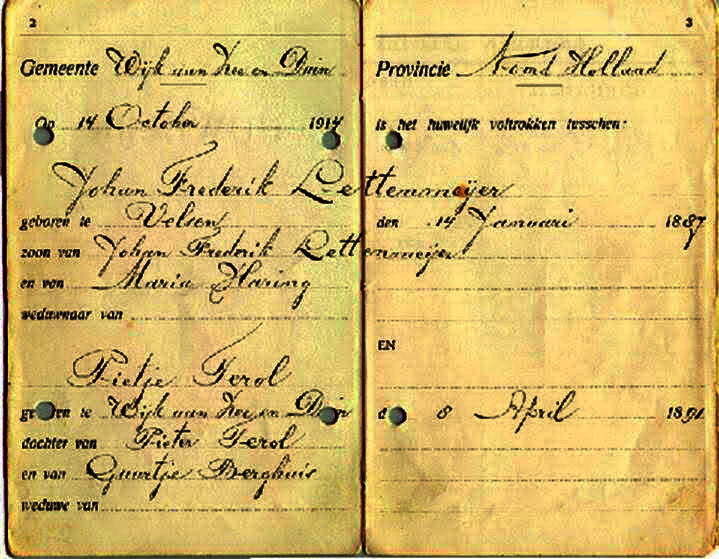 2
Gemeente Wijk aan Zee en Duin
Op 14 October 1914
Johan Frederik Lettenmeijer
geboren te Velsen
zoon van Johan Frederik Lettenmeijer
en van Maria Haring
weduwnaar van
Pietje Terol
geboren te Wijk aan Zee en Duin
dochter van Pieter Terol
en van Guurtje Berghuis
weduwe van
3
Provincie Noord Holland
is het huwelijk voltrokken tusschen:
den 14 Januari 1887
EN
8 April 1891